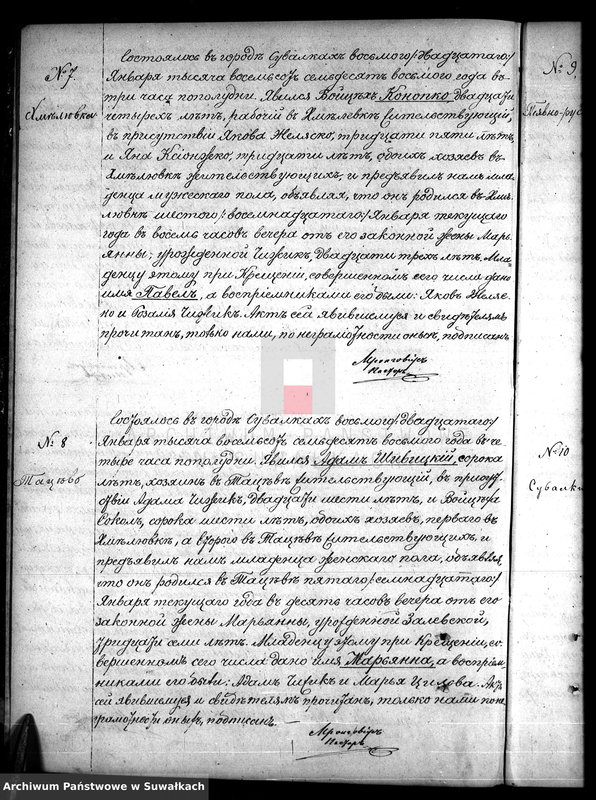 № 7.
Хмѣлювка
Состоялось въ городѣ Сувалкахъ восьмого/двадцатаго/
Января тысяча восемьсотъ семьдесятъ восьмого года въ
три часа пополудни. Явился Войцѣхъ Конопко, двадцати
четырехъ лѣтъ, рабочій въ Хмѣлевкѣ жительствующій,
въ присутствіи Якова Желяско, тридцати пяти лѣтъ,
и Яна Ксіонджко, тридцати лѣтъ, обоихъ хозяевъ въ
Хмѣлювкѣ жительствующихъ, и предъявилъ намъ мла-
денца мужескаго пола, объявляя, что онъ родился въ Хмѣ-
лювкѣ шестого/восемнадцатаго/Января текущаго
года въ восемь часовъ вечера отъ его законной жены Марь-
янны, урожденной Чижикъ, двадцати трехъ лѣтъ. Мла-
денцу этому при Крещеніи, совершенномъ сего числа дано
имя Павелъ, а воспріемниками его были: Яковъ Желяс-
ко и Розалія Чижикъ. Актъ сей явившемуся и свидѣтелямъ
прочитанъ, только нами, по неграмотности оныхъ, подписанъ
№ 8
Тацѣво
Состоялось въ городѣ Сувалкахъ восьмого/двадцатаго/
Января тысяча восемьсотъ семьдесятъ восьмого года въ че-
тыре часа пополудни. Явился Адамъ Шивицкій, сорока
лѣтъ, хозяинъ въ Тацѣвѣ жительствующій, въ присут-
ствіи Адама Чижикъ, двадцати шести лѣтъ, и Войцѣха
Соколъ, сорока шести лѣтъ, обоихъ хозяевъ, перваго въ
Хмѣлювкѣ, а второго въ Тацѣвѣ жительствующихъ, и
предъявилъ намъ младенца женскаго пола, объявляя,
что онъ родился въ Тацѣвѣ пятаго/семнадцатаго/
Января текущаго года въ десять часовъ вечера отъ его
законной жены Марьянны, урожденной Залевской,
тридцати семи лѣтъ. Младенцу этому при Крещеніи, со-
вершенномъ сего числа дано имя Марьянна, а воспріем-
никами его были: Адамъ Чижикъ и Марья Цилова. Актъ
сей явившемуся и свидѣтелямъ прочитанъ, только нами по не-
грамотности оныхъ, подписанъ.
№ 9
№ 10
Сувалки
Archiwum Państwowe w Suwałkach